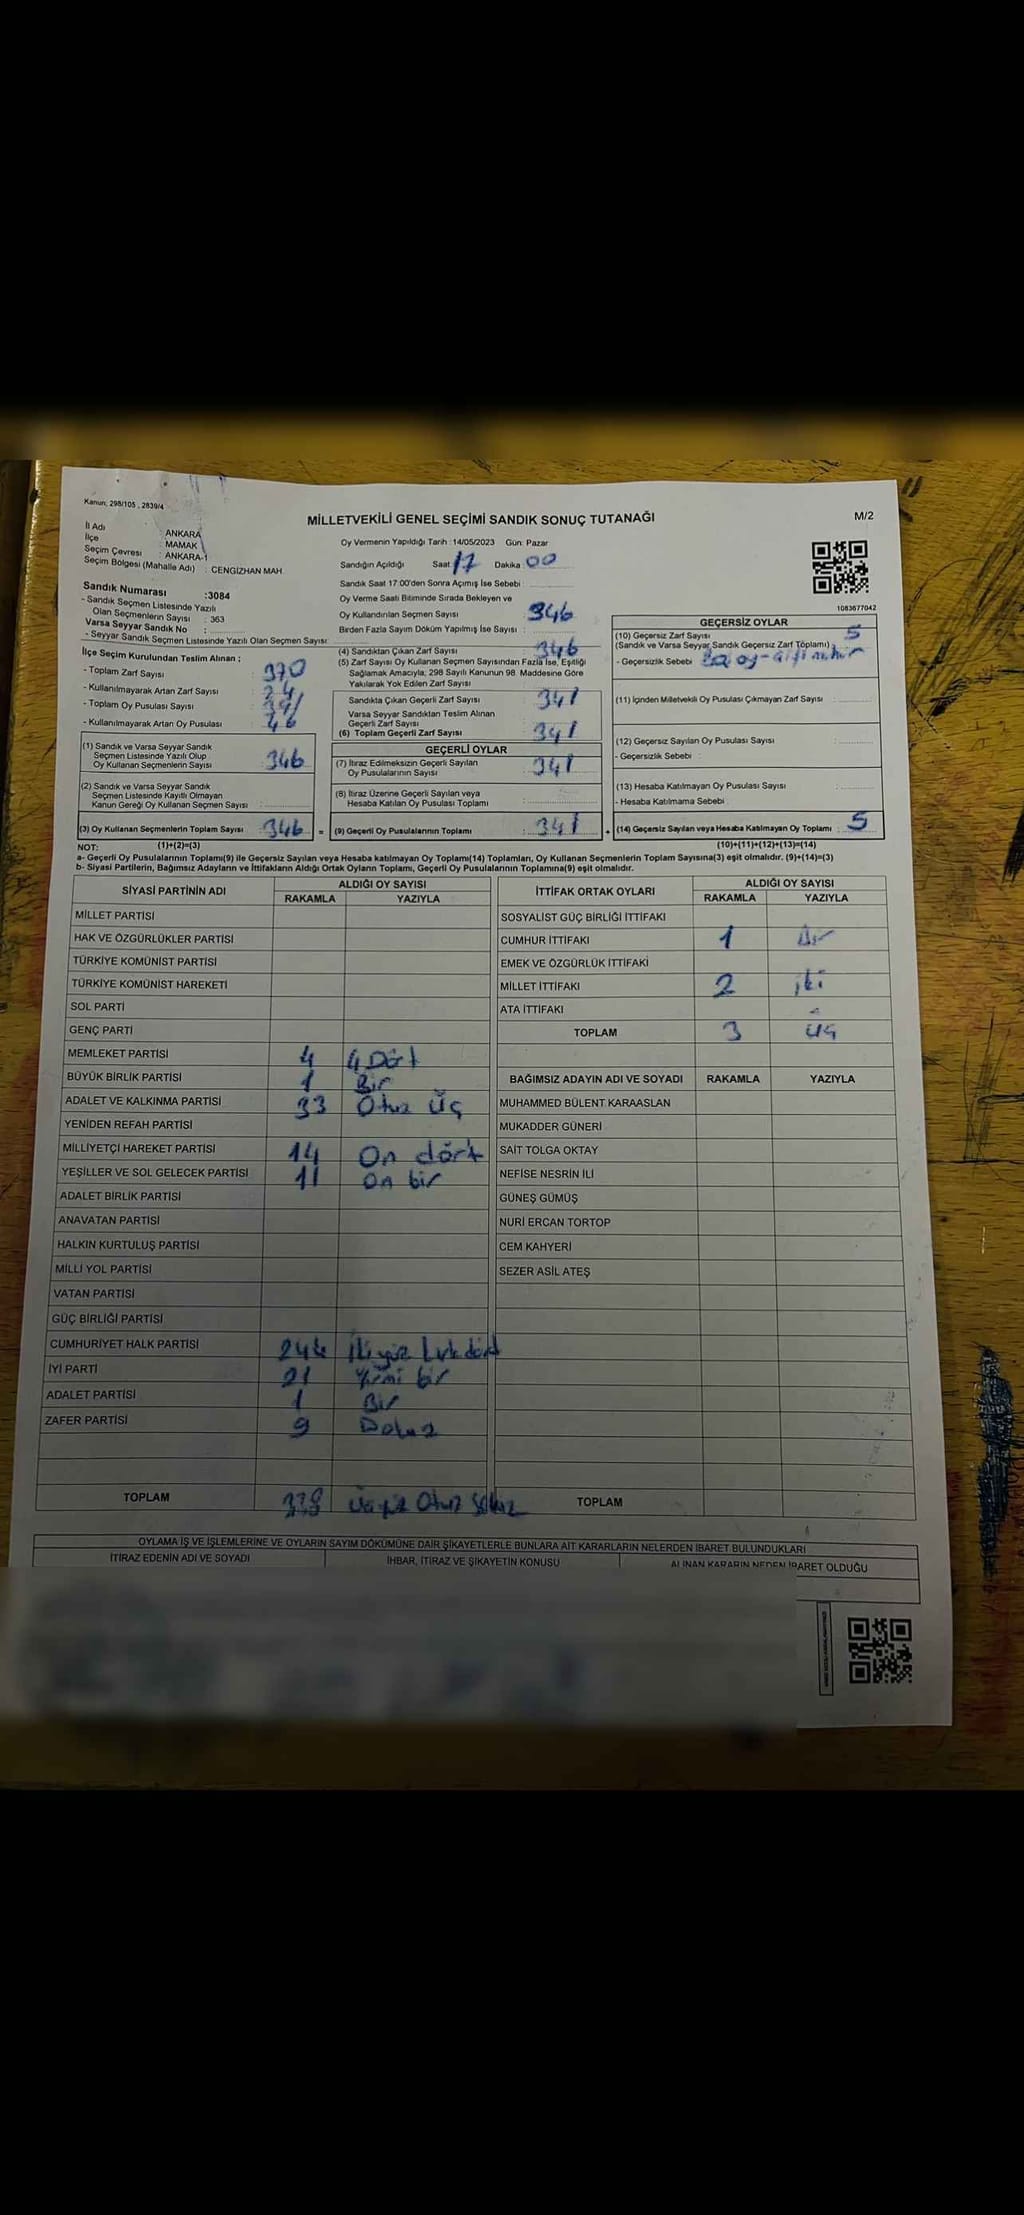 Kanun: 298/105 , 2839/4
MİLLETVEKİLİ GENEL SEÇİMİ SANDIK SONUÇ TUTANAĞI
M/2
İl Adı : ANKARA
İlçe : MAMAK
Seçim Çevresi : ANKARA-1
Seçim Bölgesi (Mahalle Adı) : CENGİZHAN MAH.
Oy Vermenin Yapıldığı Tarih : 14/05/2023 Gün: Pazar
Sandığın Açıldığı Saat 17 Dakika 00
Sandık Saat 17:00'den Sonra Açılmış İse Sebebi :
Oy Verme Saati Bitiminde Sırada Bekleyen ve
Oy Kullandırılan Seçmen Sayısı 346
Birden Fazla Sayım Döküm Yapılmış İse Sayısı :
1083677042
Sandık Numarası :3084
- Sandık Seçmen Listesinde Yazılı
Olan Seçmenlerin Sayısı : 363
Varsa Seyyar Sandık No :
- Seyyar Sandık Seçmen Listesinde Yazılı Olan Seçmen Sayısı:
İlçe Seçim Kurulundan Teslim Alınan ;
- Toplam Zarf Sayısı : 370
- Kullanılmayarak Artan Zarf Sayısı : 24
- Toplam Oy Pusulası Sayısı :
- Kullanılmayarak Artan Oy Pusulası :
(1) Sandık ve Varsa Seyyar Sandık
Seçmen Listesinde Yazılı Olup
Oy Kullanan Seçmenlerin Sayısı : 346
(2) Sandık ve Varsa Seyyar Sandık
Seçmen Listesinde Kayıtlı Olmayan
Kanun Gereği Oy Kullanan Seçmen Sayısı :
(3) Oy Kullanan Seçmenlerin Toplam Sayısı : 346 =
(4) Sandıktan Çıkan Zarf Sayısı : 346
(5) Zarf Sayısı Oy Kullanan Seçmen Sayısından Fazla İse, Eşitliği
Sağlamak Amacıyla, 298 Sayılı Kanunun 98. Maddesine Göre
Yakılarak Yok Edilen Zarf Sayısı
Sandıkta Çıkan Geçerli Zarf Sayısı : 341
Varsa Seyyar Sandıktan Teslim Alınan
Geçerli Zarf Sayısı
(6) Toplam Geçerli Zarf Sayısı : 341
GEÇERLİ OYLAR
(7) İtiraz Edilmeksizin Geçerli Sayılan
Oy Pusulalarının Sayısı : 341
(8) İtiraz Üzerine Geçerli Sayılan veya
Hesaba Katılan Oy Pusulası Toplamı :
(9) Geçerli Oy Pusulalarının Toplamı : 341 +
GEÇERSİZ OYLAR
(10) Geçersiz Zarf Sayısı : 5
(Sandık ve Varsa Seyyar Sandık Geçersiz Zarf Toplamı)
- Geçersizlik Sebebi :
(11) İçinden Milletvekili Oy Pusulası Çıkmayan Zarf Sayısı :
(12) Geçersiz Sayılan Oy Pusulası Sayısı :
- Geçersizlik Sebebi :
(13) Hesaba Katılmayan Oy Pusulası Sayısı :
- Hesaba Katılmama Sebebi :
(14) Geçersiz Sayılan veya Hesaba Katılmayan Oy Toplamı : 5
NOT: (1)+(2)=(3) (10)+(11)+(12)+(13)=(14)
a- Geçerli Oy Pusulalarının Toplamı(9) ile Geçersiz Sayılan veya Hesaba katılmayan Oy Toplamı(14) Toplamları, Oy Kullanan Seçmenlerin Toplam Sayısına(3) eşit olmalıdır. (9)+(14)=(3)
b- Siyasi Partilerin, Bağımsız Adayların ve İttifakların Aldığı Ortak Oyların Toplamı, Geçerli Oy Pusulalarının Toplamına(9) eşit olmalıdır.
SİYASİ PARTİNİN ADI ALDIĞI OY SAYISI
RAKAMLA YAZIYLA
MİLLET PARTİSİ
HAK VE ÖZGÜRLÜKLER PARTİSİ
TÜRKİYE KOMÜNİST PARTİSİ
TÜRKİYE KOMÜNİST HAREKETİ
SOL PARTİ
GENÇ PARTİ
MEMLEKET PARTİSİ 4 4 Dört
BÜYÜK BİRLİK PARTİSİ 1 Bir
ADALET VE KALKINMA PARTİSİ 33 Otuz Üç
YENİDEN REFAH PARTİSİ
MİLLİYETÇİ HAREKET PARTİSİ 14 On dört
YEŞİLLER VE SOL GELECEK PARTİSİ 11 on bir
ADALET BİRLİK PARTİSİ
ANAVATAN PARTİSİ
HALKIN KURTULUŞ PARTİSİ
MİLLİ YOL PARTİSİ
VATAN PARTİSİ
GÜÇ BİRLİĞİ PARTİSİ
CUMHURİYET HALK PARTİSİ 244 İkiyüz kırk dört
İYİ PARTİ 21 Yirmi bir
ADALET PARTİSİ 1 Bir
ZAFER PARTİSİ 9 Dokuz
TOPLAM 338 Üçyüz Otuz Sekiz
İTTİFAK ORTAK OYLARI ALDIĞI OY SAYISI
RAKAMLA YAZIYLA
SOSYALİST GÜÇ BİRLİĞİ İTTİFAKI
CUMHUR İTTİFAKI 1 Bir
EMEK VE ÖZGÜRLÜK İTTİFAKI
MİLLET İTTİFAKI 2 iki
ATA İTTİFAKI
TOPLAM 3 üç
BAĞIMSIZ ADAYIN ADI VE SOYADI RAKAMLA YAZIYLA
MUHAMMED BÜLENT KARAASLAN
MUKADDER GÜNERİ
SAİT TOLGA OKTAY
NEFİSE NESRİN İLİ
GÜNEŞ GÜMÜŞ
NURİ ERCAN TORTOP
CEM KAHYERİ
SEZER ASİL ATEŞ
TOPLAM
OYLAMA İŞ VE İŞLEMLERİNE VE OYLARIN SAYIM DÖKÜMÜNE DAİR ŞİKAYETLERLE BUNLARA AİT KARARLARIN NELERDEN İBARET BULUNDUKLARI
İTİRAZ EDENİN ADI VE SOYADI İHBAR, İTİRAZ VE ŞİKAYETİN KONUSU ALINAN KARARIN NEDEN İBARET OLDUĞU